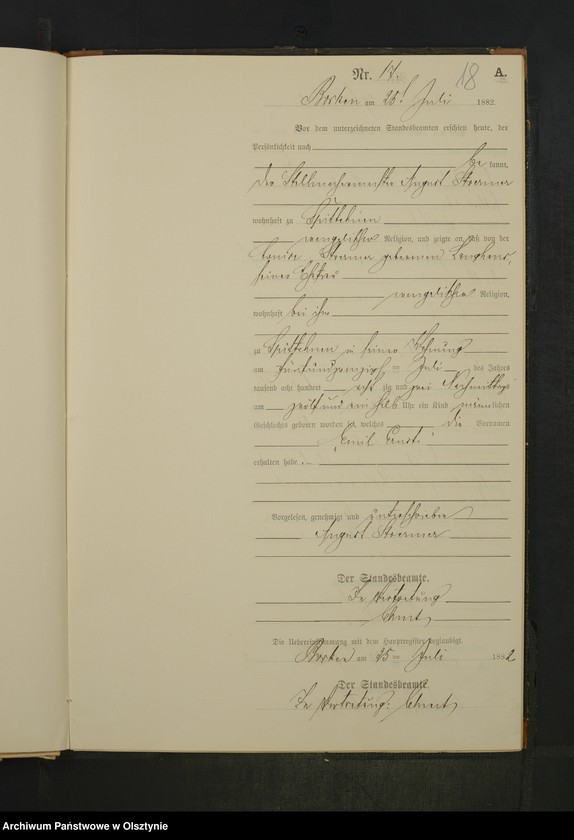 Nr. 17. 18 A.
Borken am 25t Juli 1882
Vor dem unterzeichneten Standesbeamten erschien heute, der
Persönlichkeit nach
be kannt,
der August Stoermer
wohnhaft zu
evangelischer Religion, und zeigte an, daß von der
Stoermer geborenen
seiner Ehefrau
evangelischer Religion,
wohnhaft bei ihm
zu in seiner Wohnung
am fünfundzwanzigsten Juli des Jahres
tausend acht hundert acht zig und zwei Nachmittags
um zwölf und ein halb Uhr ein Kind männlichen
Geschlechts geboren worden sei, welches die Vornamen
Emil Ernst
erhalten habe.
Vorgelesen, genehmigt und unterschrieben
August Stoermer
Der Standesbeamte.
In Vertretung
Die Uebereinstimmung mit dem Hauptregister beglaubigt.
Borken am 25 ten Juli 1882
Der Standesbeamte.
In Vertretung:
Archiwum Państwowe w Olsztynie